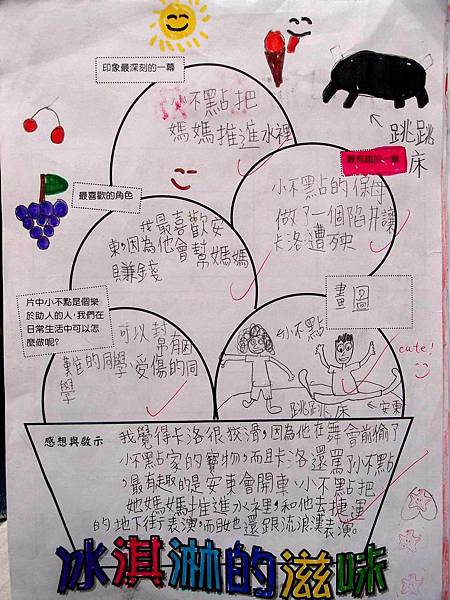 印象最深刻的一幕
小不點把
媽媽推進水裡
跳跳
床
最有趣的一幕
小不點的保母
做了一個陷井讓
卡洛遭殃
最喜歡的角色
我最喜歡安
東,因為他會幫媽媽
賺錢
片中小不點是個樂
於助人的人,我們在
日常生活中可以怎
麼做呢?
可以封幫有困
難的同學、受傷的同
學
畫圖
小不點
cute!
跳跳床
安東
感想與啟示
我覺得卡洛很狡滑,因為他在舞會前偷了
小不點家的寶物,而且卡洛還罵了小不點
,最有趣的是安東會開車、小不點把
她媽媽推進水裡,和他去捷運
的地下街表演,而且也還跟流浪漢表演。
冰淇淋的滋味